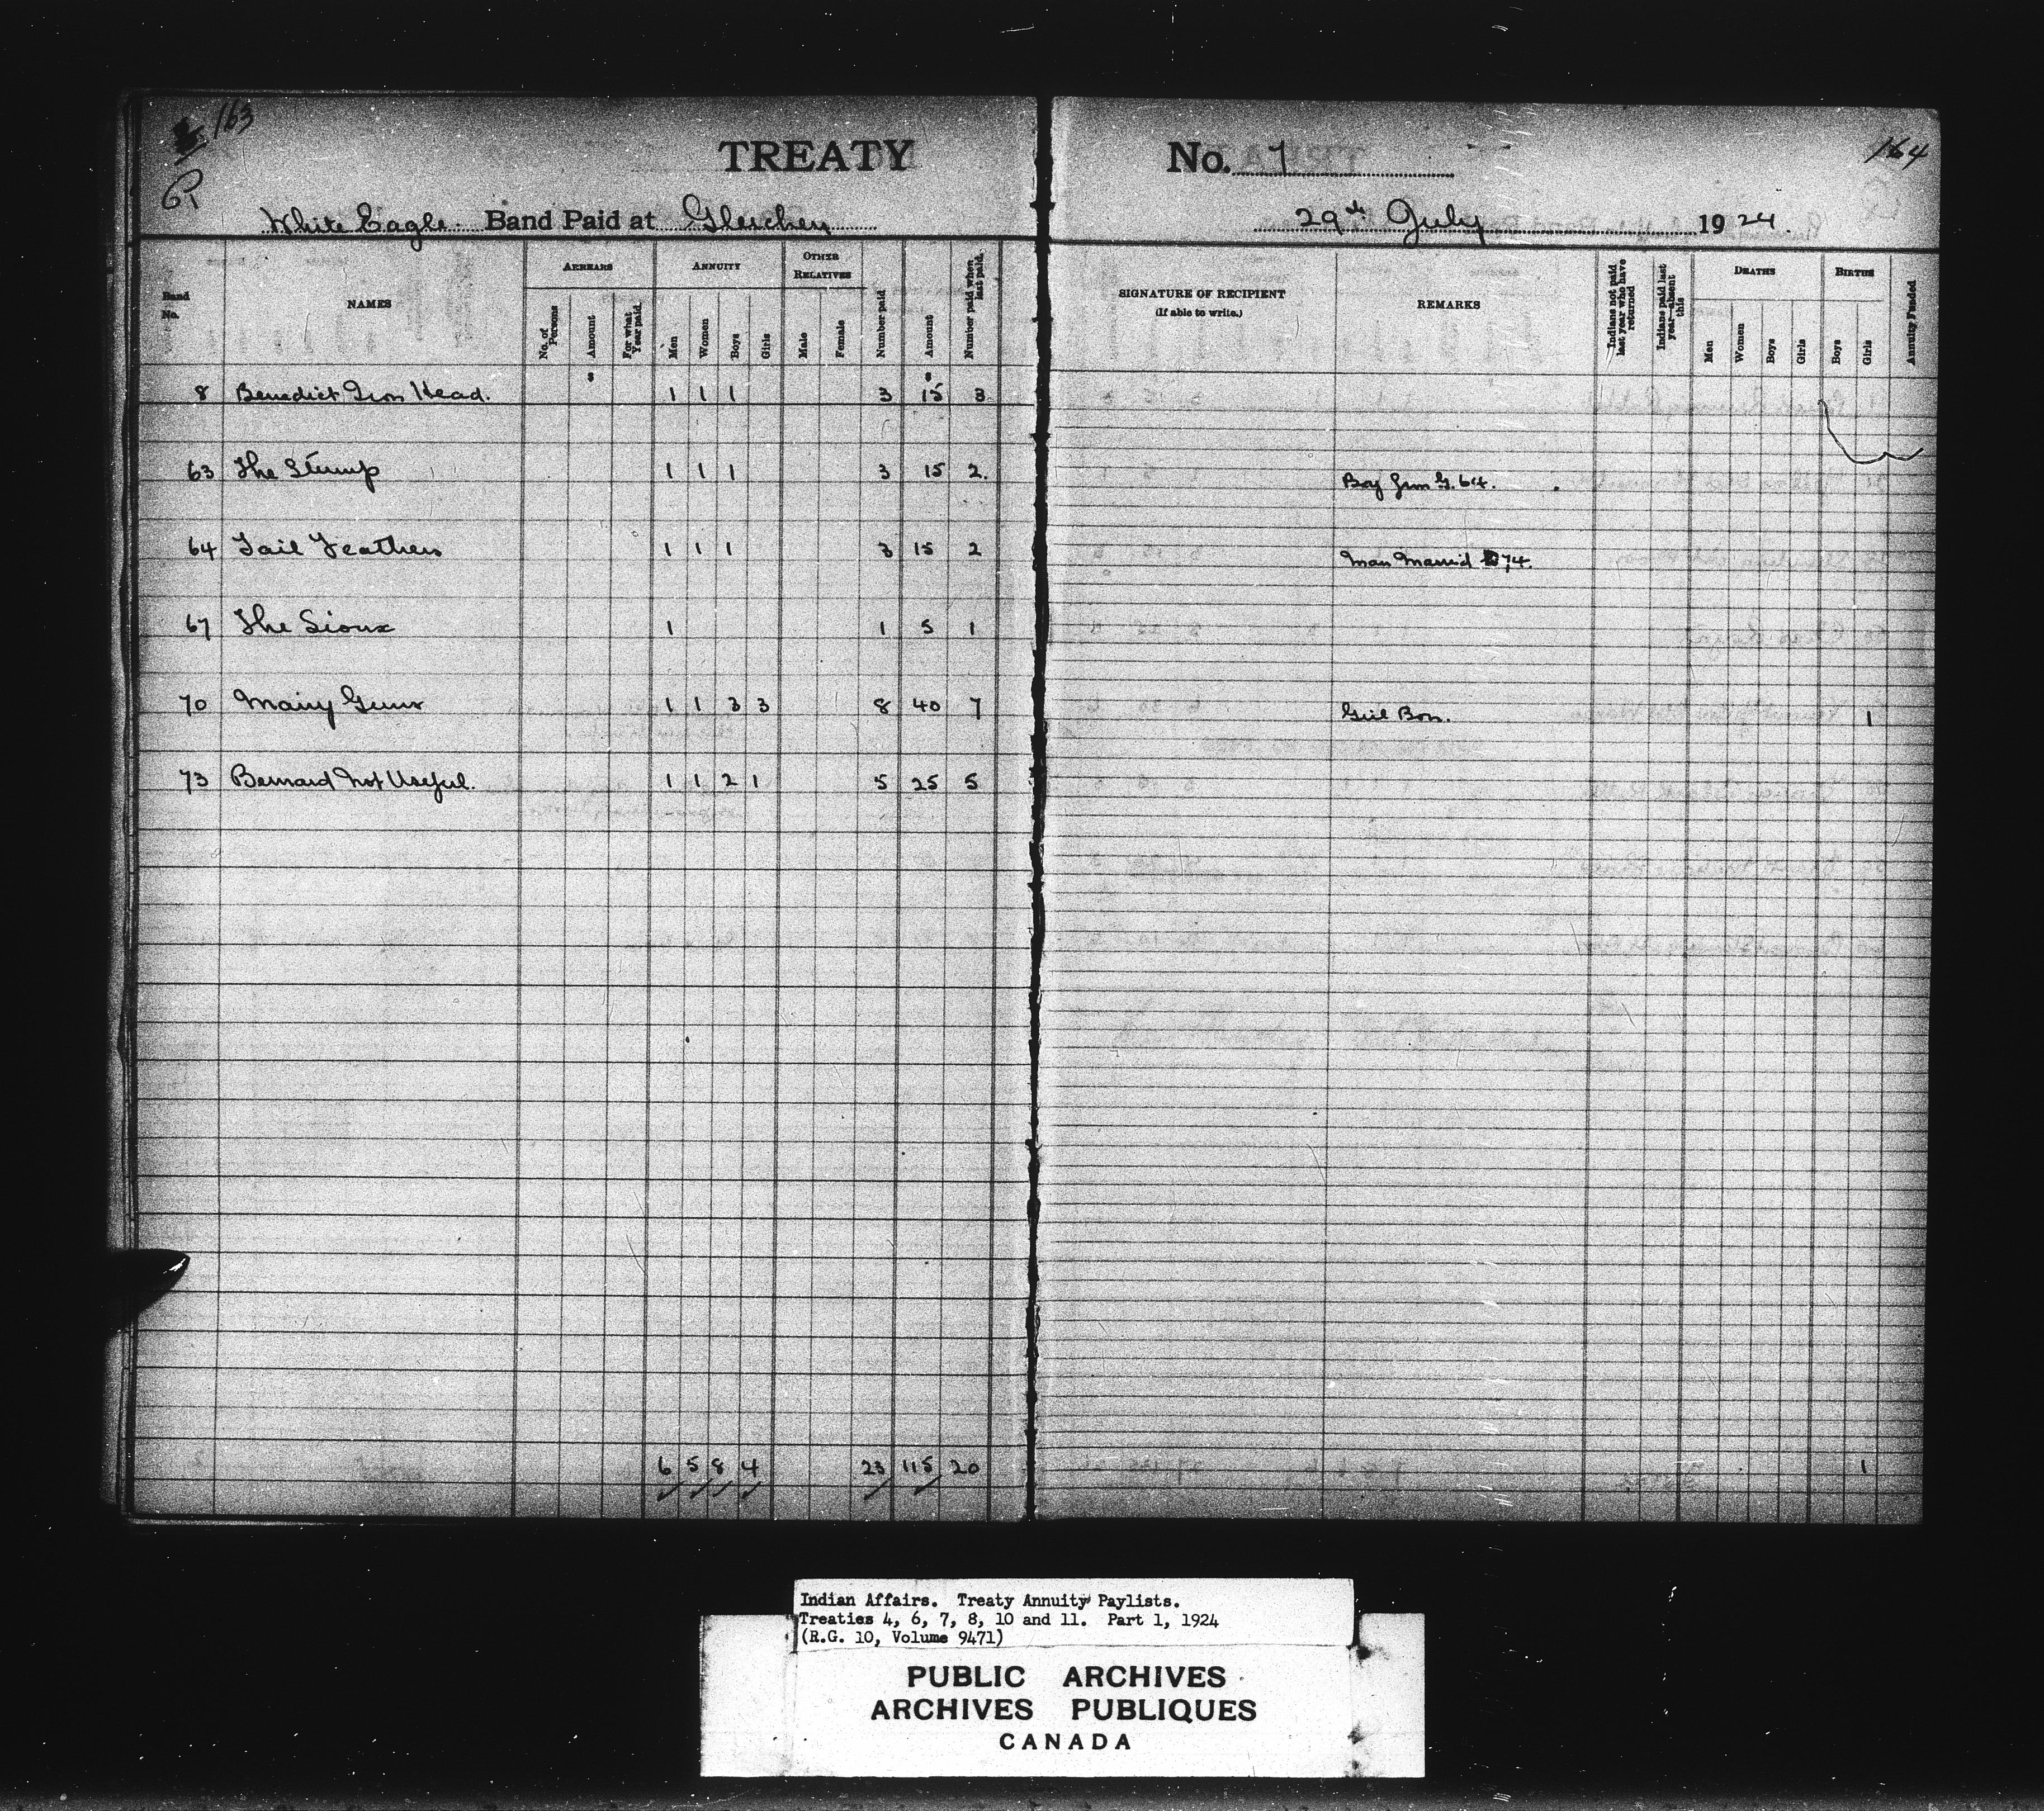 163
TREATY
No. 7
164
White Eagle. Band Paid at Gleichen
29th July 1924.
Band No.
NAMES
ARREARS
No. of Persons
Amount
For what Year paid.
ANNUITY
Men
Women
Boys
Girls
OTHER RELATIVES
Male
Female
Number paid
Amount
Number paid when last paid.
SIGNATURE OF RECIPIENT
(If able to write.)
REMARKS
Indians not paid last year who have returned
Indians paid last year—absent this
DEATHS
Men
Women
Boys
Girls
BIRTHS
Boys
Girls
Annuity Funded
$ $
8 Benedict Iron Head. 1 1 1 3 15 3
63 The Stump 1 1 1 3 15 2. Boy from G. 64.
64 Tail Feathers 1 1 1 3 15 2 Man Married 74.
67 The Sioux 1 1 5 1
70 Many Guns 1 1 3 3 8 40 7 Girl Born. 1
73 Bernard Not Useful. 1 1 2 1 5 25 5
6 5 8 4 23 115 20 1
Indian Affairs. Treaty Annuity Paylists.
Treaties 4, 6, 7, 8, 10 and 11. Part 1, 1924
(R.G. 10, Volume 9471)
PUBLIC ARCHIVES
ARCHIVES PUBLIQUES
CANADA